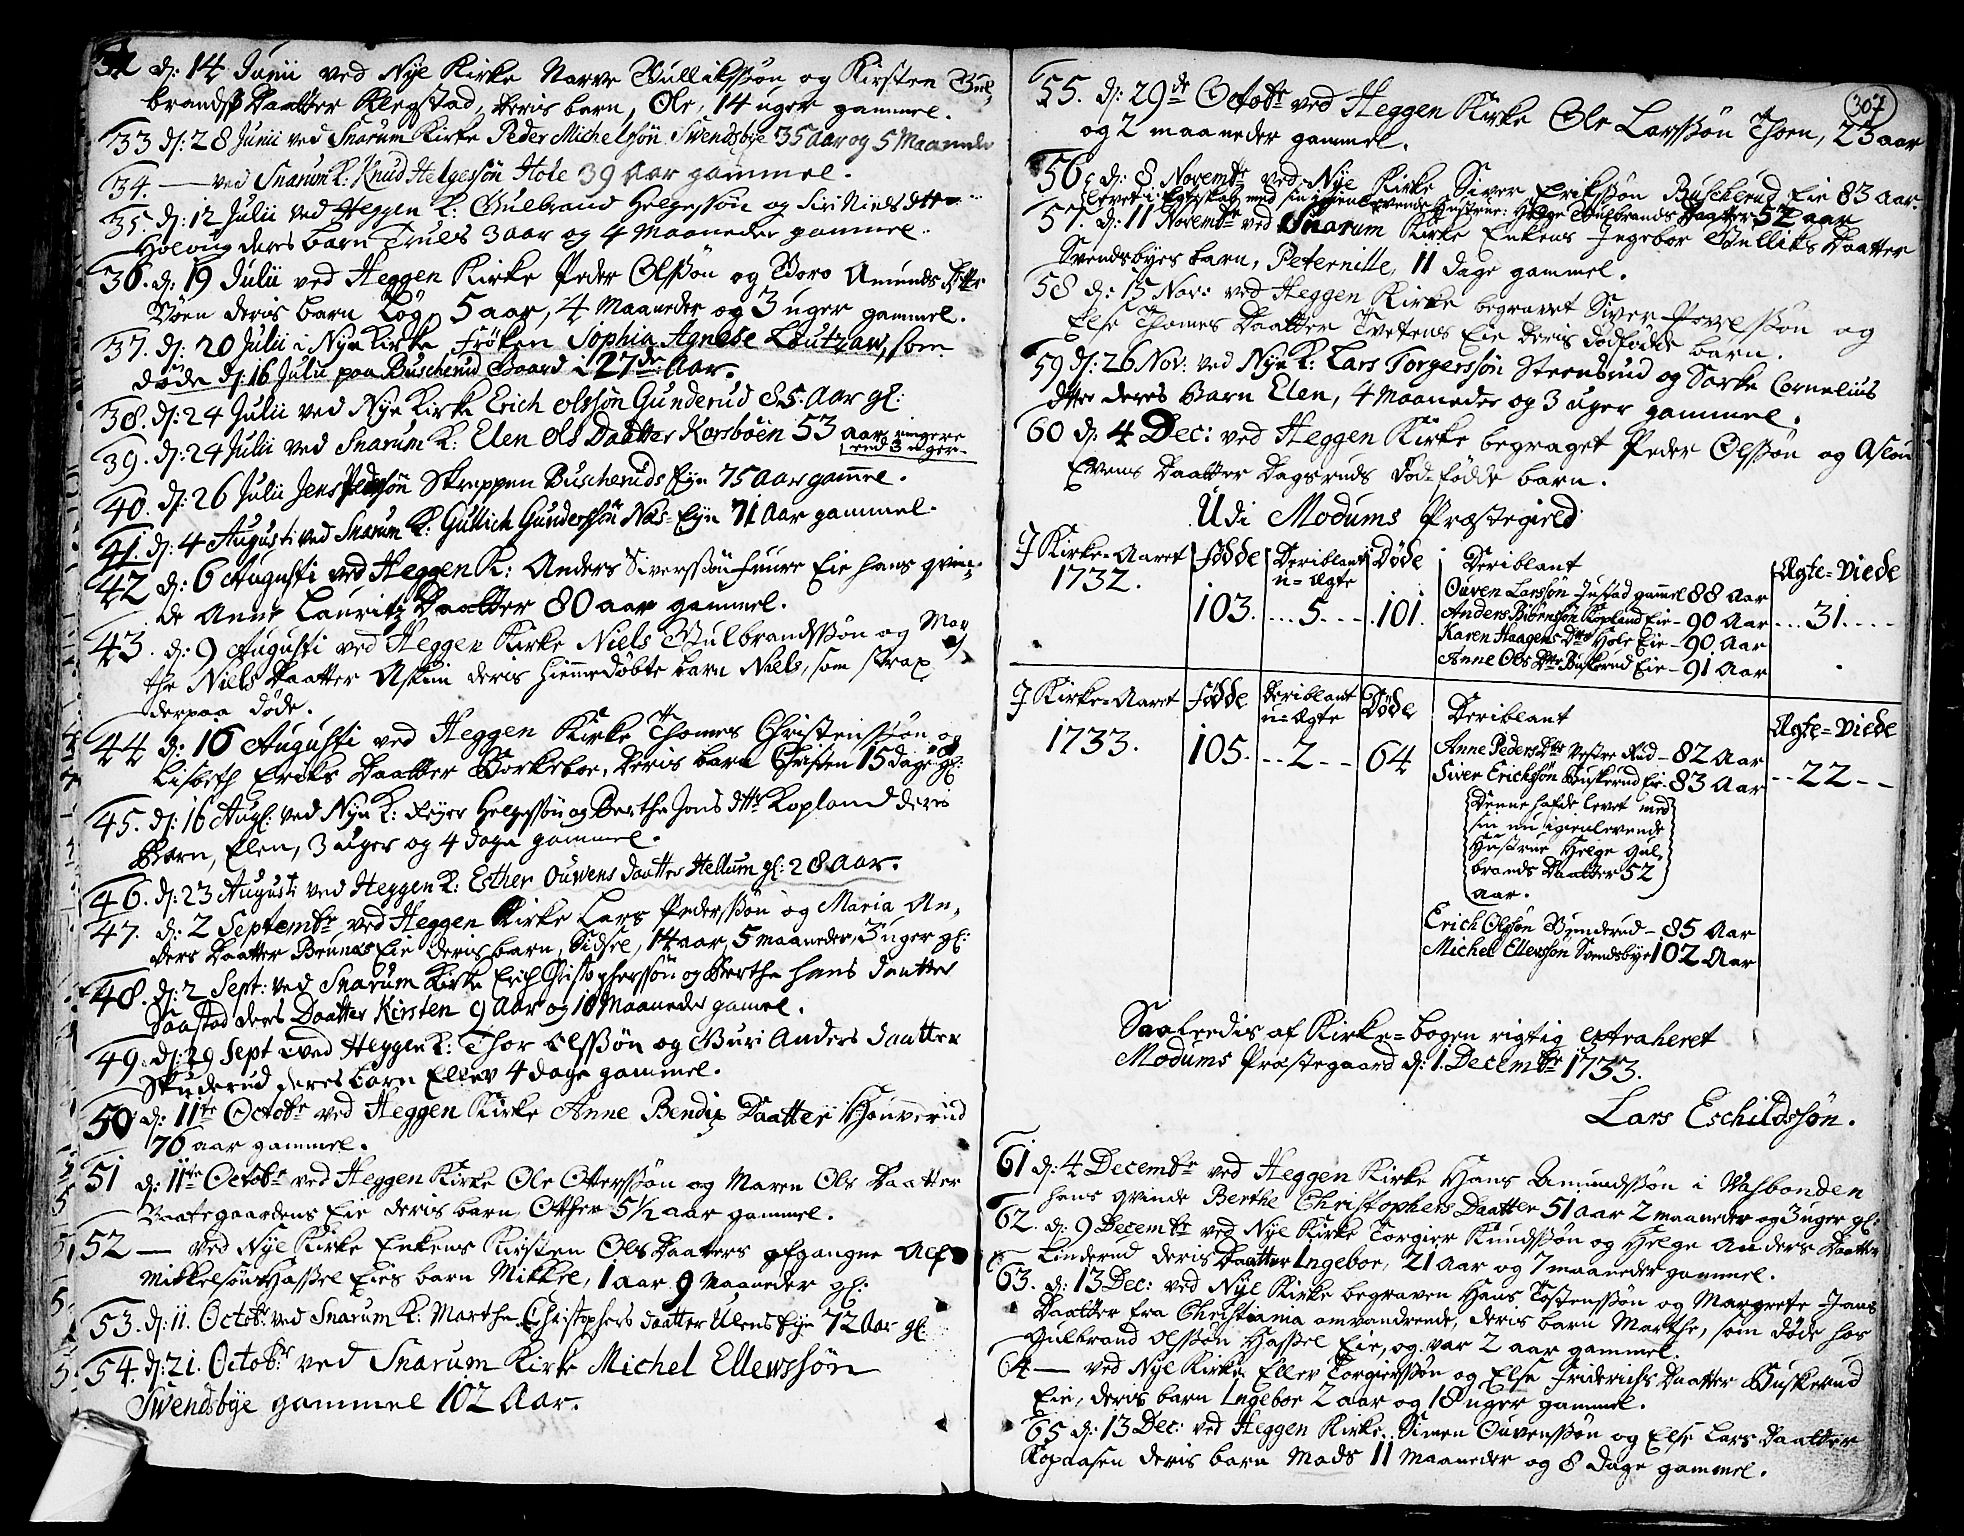 32 d: 14 Junii ved Nye Kirke Narve Gulliksøn og Kirsten Gul-
brands Daatter Klegstad, deris barn, Ole, 14 uger gammel.
33 d: 28 Junii ved Snarum Kirke Peder Michelsøn Svendsbye 35 Aar og 5 Maaneder
34. — ved Snarum K: Knud Helgesøn Hole 39 Aar gammel.
35. d: 12 Julii ved Heggen K: Gulbrand Helgessøn og Siri Niels dtter
Holvug deres barn Truls 3 aar og 4 Maaneder gammel.
36. d: 19 Julii ved Heggen Kirke Peder Olssøn og Goro Amunds Dtter
Bøen deris barn 5 aar, 4 Maaneder og 3 uger gammel.
37. d: 20 Julii i Nye Kirke Fröken Sophia Agnese Leutzaw, som
døde d: 16 Julii paa Buscherud Gaard i 27de Aar.
38. d: 24 Julii ved Nye Kirke Erich Olssøn Gunderud 85 Aar gl:
39. d: 24 Julii ved Snarum K: Elen Ols Daatter Korsbøen 53 aar ringere
end 3 uger
40. d: 26 Julii Jens Pedersøn Skreppen Buscheruds Eye 75 Aar gammel.
41. d: 4 Augusti ved Snarum K: Gullich Gunderssøn Næs-Eye 71 Aar gammel.
42 d: 6 Augusti ved Heggen K: Anders Siverssøn Fuure Eie hans qvin-
de Anne Lauritz Daatter 80 aar gammel.
43. d: 9 Augusti ved Heggen Kirke Niels Gulbrandssøn og Mar-
the Niels Daatter Askim deris hiemmedøbte barn Niels, som strax
derpaa døde.
44 d: 16 Augusti ved Heggen Kirke Thomes Christenssøn og
Lisbeth Eriks Daatter Borkeboe, deris barn Christen 15 dage gl:
45. d: 16 Aug: ved Nye K: Feyer Helgessøn og Berthe Jons dtter Kopland deres
Barn, Elen, 3 uger og 4 dage gammel.
46. d: 23 Augusti ved Heggen K: Esther Ouwens daatter Hellum gl: 28 Aar.
47. d: 2 Septembr ved Heggen Kirke Lars Pederssøn og Maria An-
ders Daatter Brunæs Eie deris barn, Sidsel, 14 aar, 5 maaneder, 3 uger gl:
48. d: 2 Sept: ved Snarum Kirke Erich Christopherssøn og Berthe Hans daatter
Saastad deres Daatter Kirsten 9 Aar og 10 Maaneder gamel.
49. d: 29 Sept ved Heggen K: Thor Olssøn og Guri Anders daatter
Skuderud deres barn Ellev 4 dage gammel.
50 d: 11te Octobr ved Heggen Kirke Anne Bendix Daatter Hønverud
76 aar gammel.
51 d: 11te Octobr ved Heggen Kirke Ole Otterssøn og Maren Ols Daatter
Vaategaardens Eie deris barn Otther 5½ aar gammel.
52 — ved Nye Kirke Enkens Kirsten Ols Daatters afgangne Alf
Mikkelsøn Hassel Eies barn Mikkel, 1 aar 9 Maaneder gl:
53. d: 11. Octobr ved Snarum K: Marthe Christophers daatter Ulens Eye 72 Aar gl:
54. d: 21. Octobr ved Snarum Kirke Michel Ellewssøn
Svendsbye gammel 102 Aar.
307
55. d: 29de Octobr ved Heggen Kirke Ole Larssøn Thoen, 23 aar
og 2 maaneder gammel.
56. d: 8 Novembr ved Nye Kirke Siver Erikssøn Buscherud Eie 83 aar.
levet i Egteskab med sin igienlevende Hustrue: Helge Gulbrands Daatter 52 aar
57. d: 11 Novembr ved Snarum Kirke Enkens Ingebor Gulliks Daatter
Svendsbyes barn, Peternille, 11 dage gammel.
58 d: 15 Nov: ved Heggen Kirke begravet Siver Povelssøn og
Else Thomes Daatter Tvetens Eie deris dødfødde barn.
59 d: 26 Nov: ved Nye K: Lars Torgerssøn Steensrud og Sarke Cornelius
dtter deres Barn Elen, 4 Maaneder og 3 uger gammel.
60 d: 4 Dec: ved Heggen Kirke begraget Peder Olssøn og Aslou
Evens Daatter Dagsruds død-fødde barn.
Udi Modums Præstegield
J Kirke-Aaret | fødde | Deriblant | Døde | Deriblant | Ægte-Viede
1732. | u-Ægte
103. ...5... 101. | Ouven Larssøn Justad gammel 88 Aar
Anders Biörnssøn Kopland Eie - 90 Aar ...31....
Karen Haagens Dtter Hole Eie - 90 Aar
Anne Ols Dtter Buskerud Eie - 91 Aar
J Kirke-Aaret | fødde | Deriblant | Døde | Deriblant | Ægte-Viede
u-Ægte
1733. | 105. --2-- 64 | Anne Peders Dtter Vestre Rud - 82 Aar
Siver Erichssøn Buskerud Eie - 83 Aar --22--
Denne hafde levet med
sin nu igienlevende
Hustrue Helge Gul-
brands Daatter 52
aar.
Erich Olssøn Gunderud - 85 Aar
Michel Ellevssøn Svendsbye 102 Aar
Saaledis af Kirke-bogen rigtig extraheret
Modums Præstegaard d: 1. Decembr 1733.
Lars Eschildssøn.
61 d: 4 Decembr ved Heggen Kirke Hans Amundssøn i Vasbonden
hans qvinde Berthe Christophers Daatter 51 aar 2 maaneder og 3 uger gl:
62. d: 9 Decembr ved Nye Kirke Torgier Knudssøn og Helge Anders Daatter
Linderud deris Daatter Ingebor, 21 aar og 7 maaneder gammel.
63. d: 13 Dec: ved Nye Kirke begraven Hans Tostenssøn og Margrete Jans
Daatter fra Christiania omvandrende, deris barn Marthe, som døde hos
Gulbrand Olssøn Hassel Eie, og var 2 aar gammel.
64 — ved Nye Kirke Ellev Torgierssøn og Else Friderichs Daatter Buskerud
Eie, deris barn Ingebor 2 aar og 18 uger gammel.
65 d: 13 Dec: ved Heggen Kirke Simen Ouvenssøn og Else Lars Daatter
Kopaasen deris barn Mads 11 Maaneder og 8 Dage gammel.